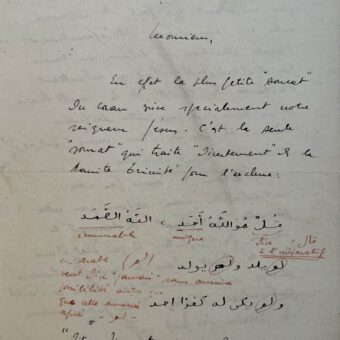 Monsieur,
En effet la plus petite "sourat"
du coran vise specialement notre
seigneur Jésus. C'est la seule
"sourat" qui traite "directement" de la
Sainte trinité pour l'exclure :
قل هو الله أحد ، الله الصمد
immuable unique Dire قال
à l'impératif
لم يلد ولم يولد
en arabe (لم)
veut dire "jamais" sans aucune
possibilité
que elle
après - لم -
ولم يكن له كفؤا احد